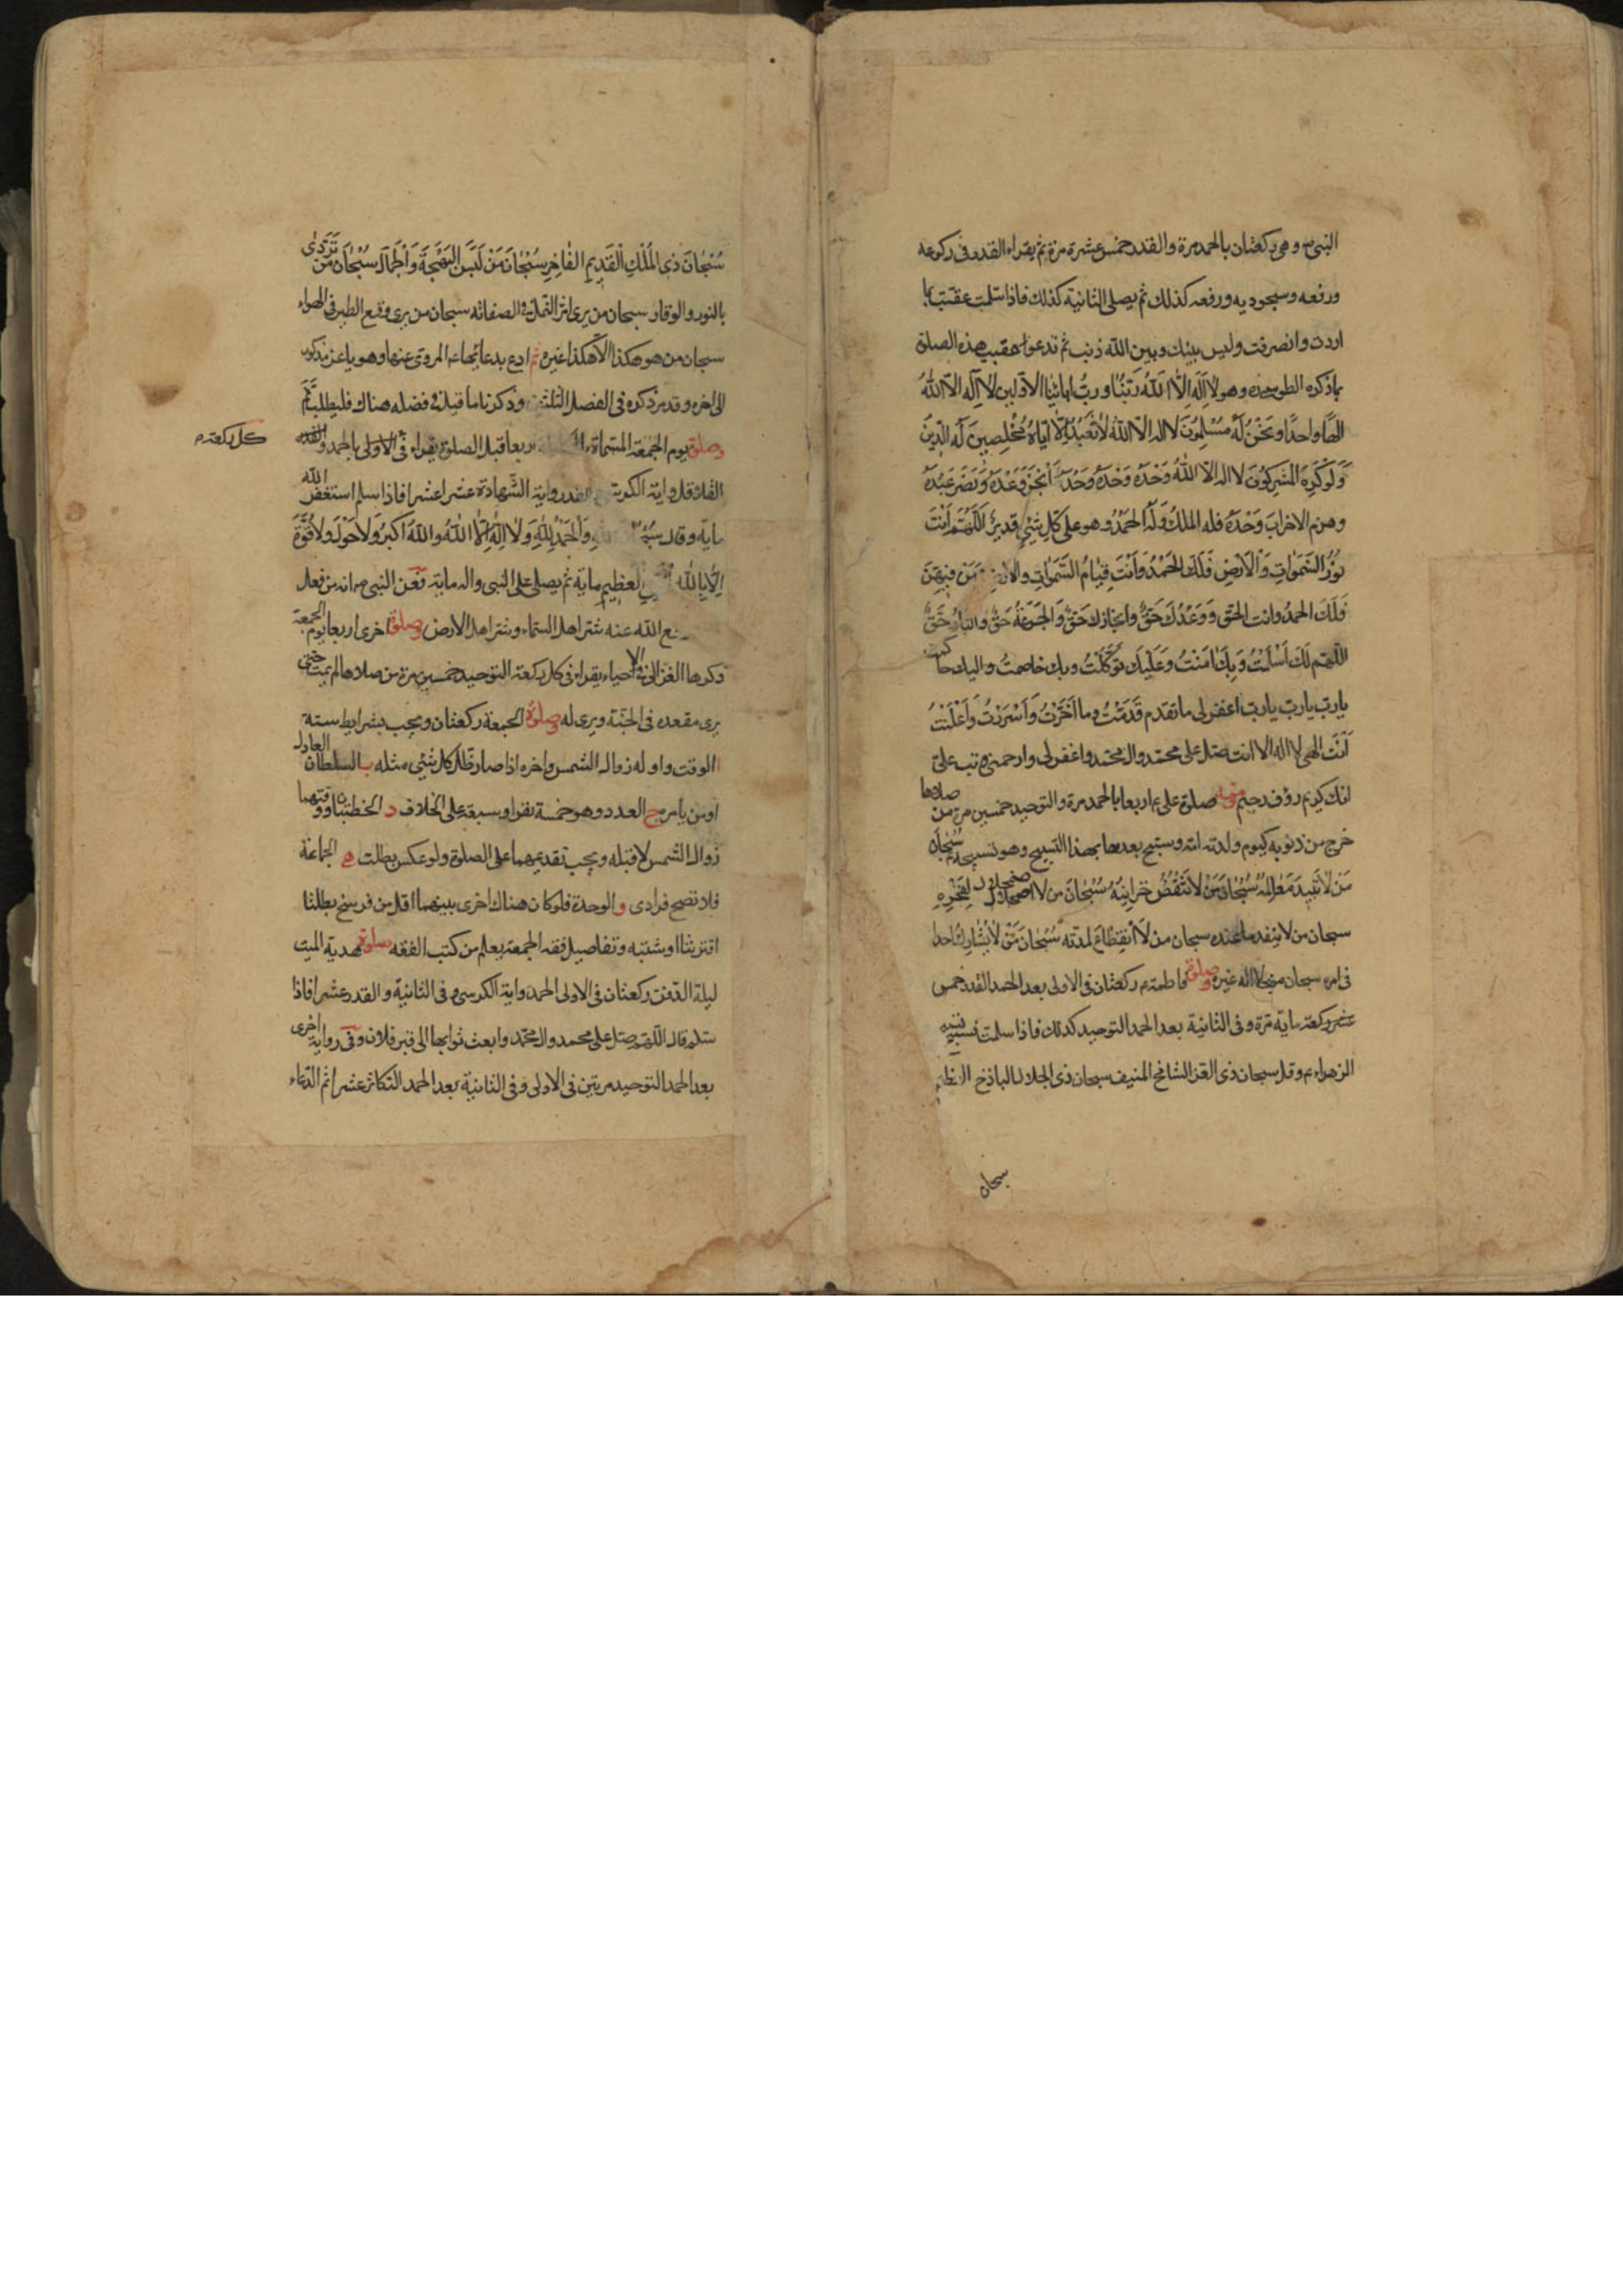 النبي ص وهى ركعتان بالحمد مرة والقدر خمس عشرة مرة ثم يقراء القدر في ركوعه
ورفعه وسجوديه ورفعه كذلك ثم يصلى الثانية كذلك فاذا سلمت عقبت بما
اردت وانصرفت وليس بينك وبين الله ذنب ثم تدعو عقيب هذه الصلوة
بما ذكره الطوسى وهو لا اِلٰهَ اِلّا اللّٰهُ رَبُّنا وربُّ ابائِنا الاوّلين لا اِلٰه الّا اللّٰهُ
الهًا واحدًا ونَحْنُ لَهُ مُسْلِمُونَ لا اله الّا اللّٰهُ لا نَعْبُدُ اِلّا اِيّاهُ مُخْلِصِينَ لَهُ الدّينَ
وَلَوْ كَرِهَ المُشرِكُونَ لا اله الّا اللّٰهُ وَحْدَهُ وَحْدَهُ وَحْدَهُ اَنْجَزَ وَعْدَهُ وَنَصَرَ عَبْدَهُ
وهزم الاحزابَ وَحْدَهُ فله الملكُ وَلَهُ الحَمْدُ وهو على كلّ شئٍ قديرٌ اَللّهُمَّ اَنْتَ
نُورُ السَّمٰواتِ وَالْاَرْضِ فَلَكَ الحَمْدُ وَاَنْتَ قِيّامُ السَّمٰواتِ والارض وَمَن فيهنّ
فَلَكَ الحمدُ وانت الحَقّ وَوَعْدُكَ حَقٌّ وانجازك حَقٌّ وَالجَنّةُ حَقٌّ والنارُ حَقٌّ
اللّهمّ لكَ اَسْلَمْتُ وَبِكَ امَنْتُ وَعَلَيْكَ تَوَكَّلْتُ وبك خاصمتُ واليك حاكمت
يا ربّ يا ربّ يا ربّ اغفر لى ما تقدم قَدَّمْتُ وما اَخَّرْتُ وَاَسْرَرْتُ وَاَعْلَنْتُ
اَنْتَ الهى لا اله الا انت صلّ على محمّد وال محمّد واغفر لى وارحمنى وتب علىّ
انك كريم رؤف رحيم وصلوة صلوة على ع اربعا بالحمد مرة والتوحيد خمسين مرة من صلاها
خرج من ذنوبه كيوم ولدته امّه وسبّح بعدها بهذا التسبيح وهو تسبيحه ع سُبْحانَ
مَن لا تَبيدُ مَعَالِمُهُ سُبْحانَ مَنْ لا تَنْقُصُ خَزائِنُهُ سُبْحانَ من لا اضمحلال لِفَخْرِهِ
سبحان من لا ينفد ما عنده سبحان من لا انقِطاعَ لمدّته سُبْحانَ مَنْ لا يُشارِكُ احدا
فى امره سبحان من لا اله غيره وصلوة فاطمة ع ركعتان فى الاولى بعد الحمد القدر
ماية مرّة وفى الثانية بعد الحمد التوحيد كذلك فاذا سلمت فسبح
الزهراء ع وقل سبحان ذى العزّ الشامخ المنيف سبحان ذى الجلال الباذخ العظيم
سبحان
سُبْحانَ ذِى المُلْكِ الْقَديمِ الفاخِرِ سُبْحانَ مَنْ لَبِسَ البَهْجَةَ وَالْجَمالَ سُبْحانَ مَن تَرَدّى
بالنور والوقار سبحان من يرى اثر النّمل فى الصفا سبحان من يرى وقع الطير فى الهواء
سبحان من هو هكذا لا هكذا غيره ثم ادع بدعائها ع المروى عنها وهو يا اعزّ مذكور
الى اخره وقد مرّ ذكره فى الفصل الثلثين وذكرنا ما قيل فى فضله هناك فليطلب ثَمّ
وصلوة يوم الجمعة المسمّاة بالكاملة اربعا قبل الصلوة يقراء فى الاولى بالحمد والقدر
كل ركعة
واية الشّهادة عشرا عشرا فاذا سلم استغفر الله
ماية وقال سبحان اللّه وَالْحَمْدُ لِلّٰهِ وَلا اِلٰهَ اِلّا اللّٰهُ واللّٰه اكبرُ وَلا حَوْلَ وَلا قُوَّةَ
اِلّا باللّٰه العلى العظيم ماية ثم يصلى على النبى واله ماية فعن النبى ص انه من فعل
دفع اللّه عنه شرّ اهل السّماء وشرّ اهل الارض وصلوة اخرى اربعا يوم الجمعة
ذكرها الغزالى فى الاحياء يقراء فى كل ركعة التوحيد خمسين مرة من صلاها لم يمت حتى
يرى مقعده فى الجنّة ويرى له وصلوة الجمعة ركعتان ويجب بشرايط ستة
ا الوقت واوله زوال الشمس واخره اذا صار ظلّ كل شئى مثله ب السلطان العادل
او من يامره ج العدد وهو خمسة نفر او سبعة على الخلاف د الخطبتان ووقتهما
زوال الشمس لا قبله ويجب تقديمهما على الصلوة ولو عكس بطلت ه الجماعة
فلا تصح فرادى و الوحدة فلو كان هناك اخرى بينهما اقل من فرسخ بطلتا
ان اقترنتا او شبّه وتفاصيل فقه الجمعة يعلم من كتب الفقه صلوة هدية الميت
ليلة الدّفن ركعتان فى الاولى الحمد واية الكرسى وفى الثانية والقدر عشرا فاذا
سلّم قال اللّهمّ صلّ على محمد وال محمّد وابعث ثوابها الى قبر فلان وفى رواية اخرى
بعد الحمد التوحيد مرتين فى الاولى وفى الثانية بعد الحمد التكاثر عشرا ثم الدعاء